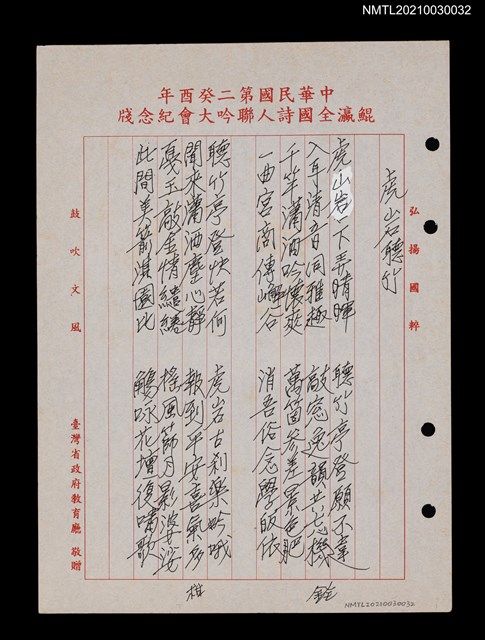 NMTL20210030032
中華民國第二癸酉年
鯤瀛全國詩人聯吟大會紀念牋
弘揚國粹
虎山岩聽竹
虎山岩下弄晴暉 聽竹亭登願不違
入耳清音同雅趣 敲窓逸韻共忘機
千竿瀟洒吟懷爽 萬箇參差翠色肥
一曲宮商傳嶰谷 消吾俗念學皈依
銓
聽竹亭登快若何 虎岩古刹樂吟哦
聞來瀟洒塵心靜 報到平安喜氣多
戛玉敲金情繾綣 搖風篩月影婆娑
此間美箭淇園比 觴咏花壇復嘯歌
鼓吹文風
臺灣省政府教育廳 敬贈
NMTL20210030032